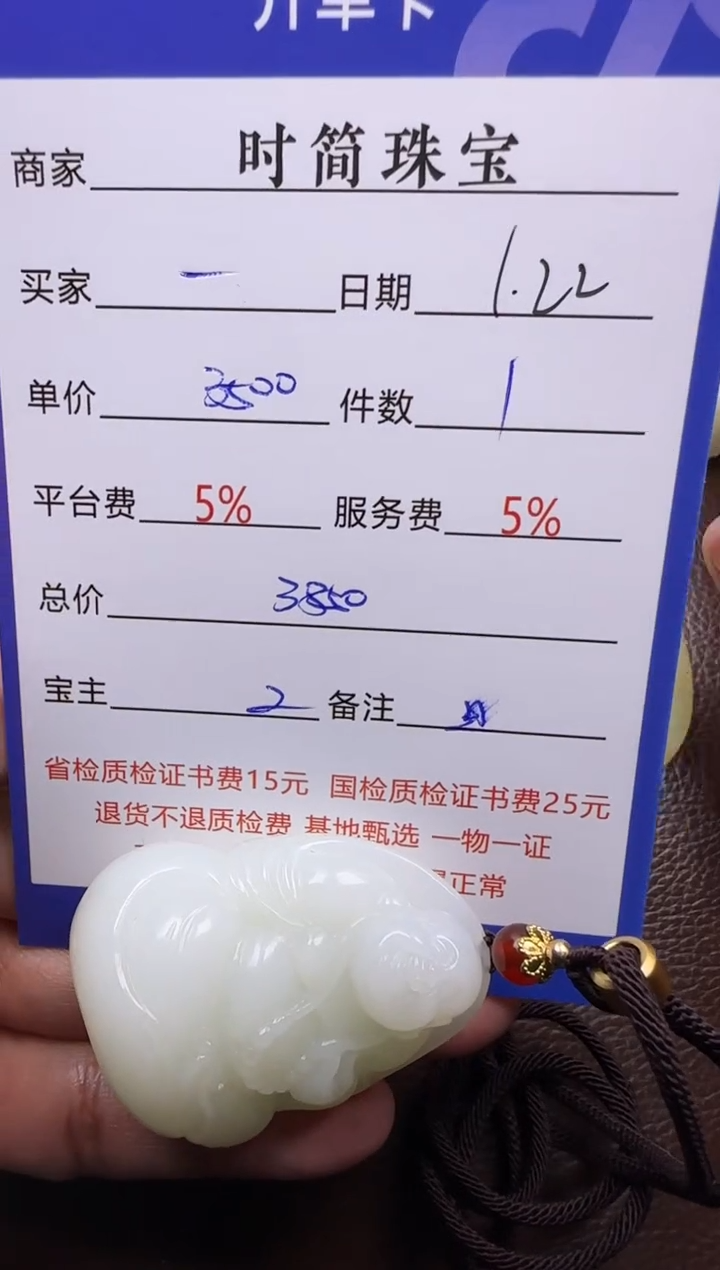 开单卡
商家 时简珠宝
买家 一 日期 1.22
单价 3500 件数 1
平台费 5% 服务费 5%
总价 3850
宝主 2 备注
省检质检证书费15元 国检质检证书费25元
退货不退质检费 基地甄选 一物一证
正常